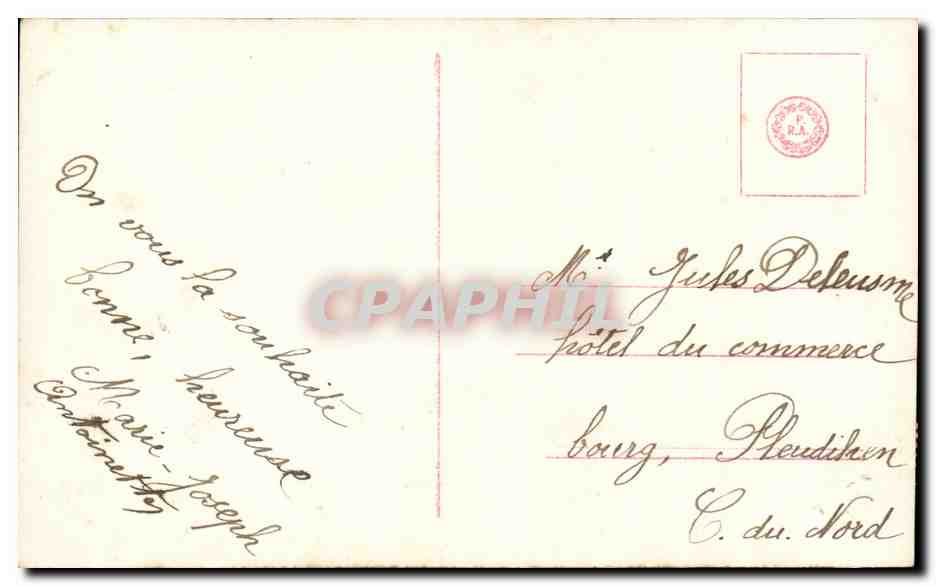 On vous la souhaite
bonne, heureuse
Marie-Joseph
Antoinette
P.
R.A.
Mr. Jules Deleusme
hôtel du commerce
bourg, Pleudihen
C. du. Nord
CPAPHIL